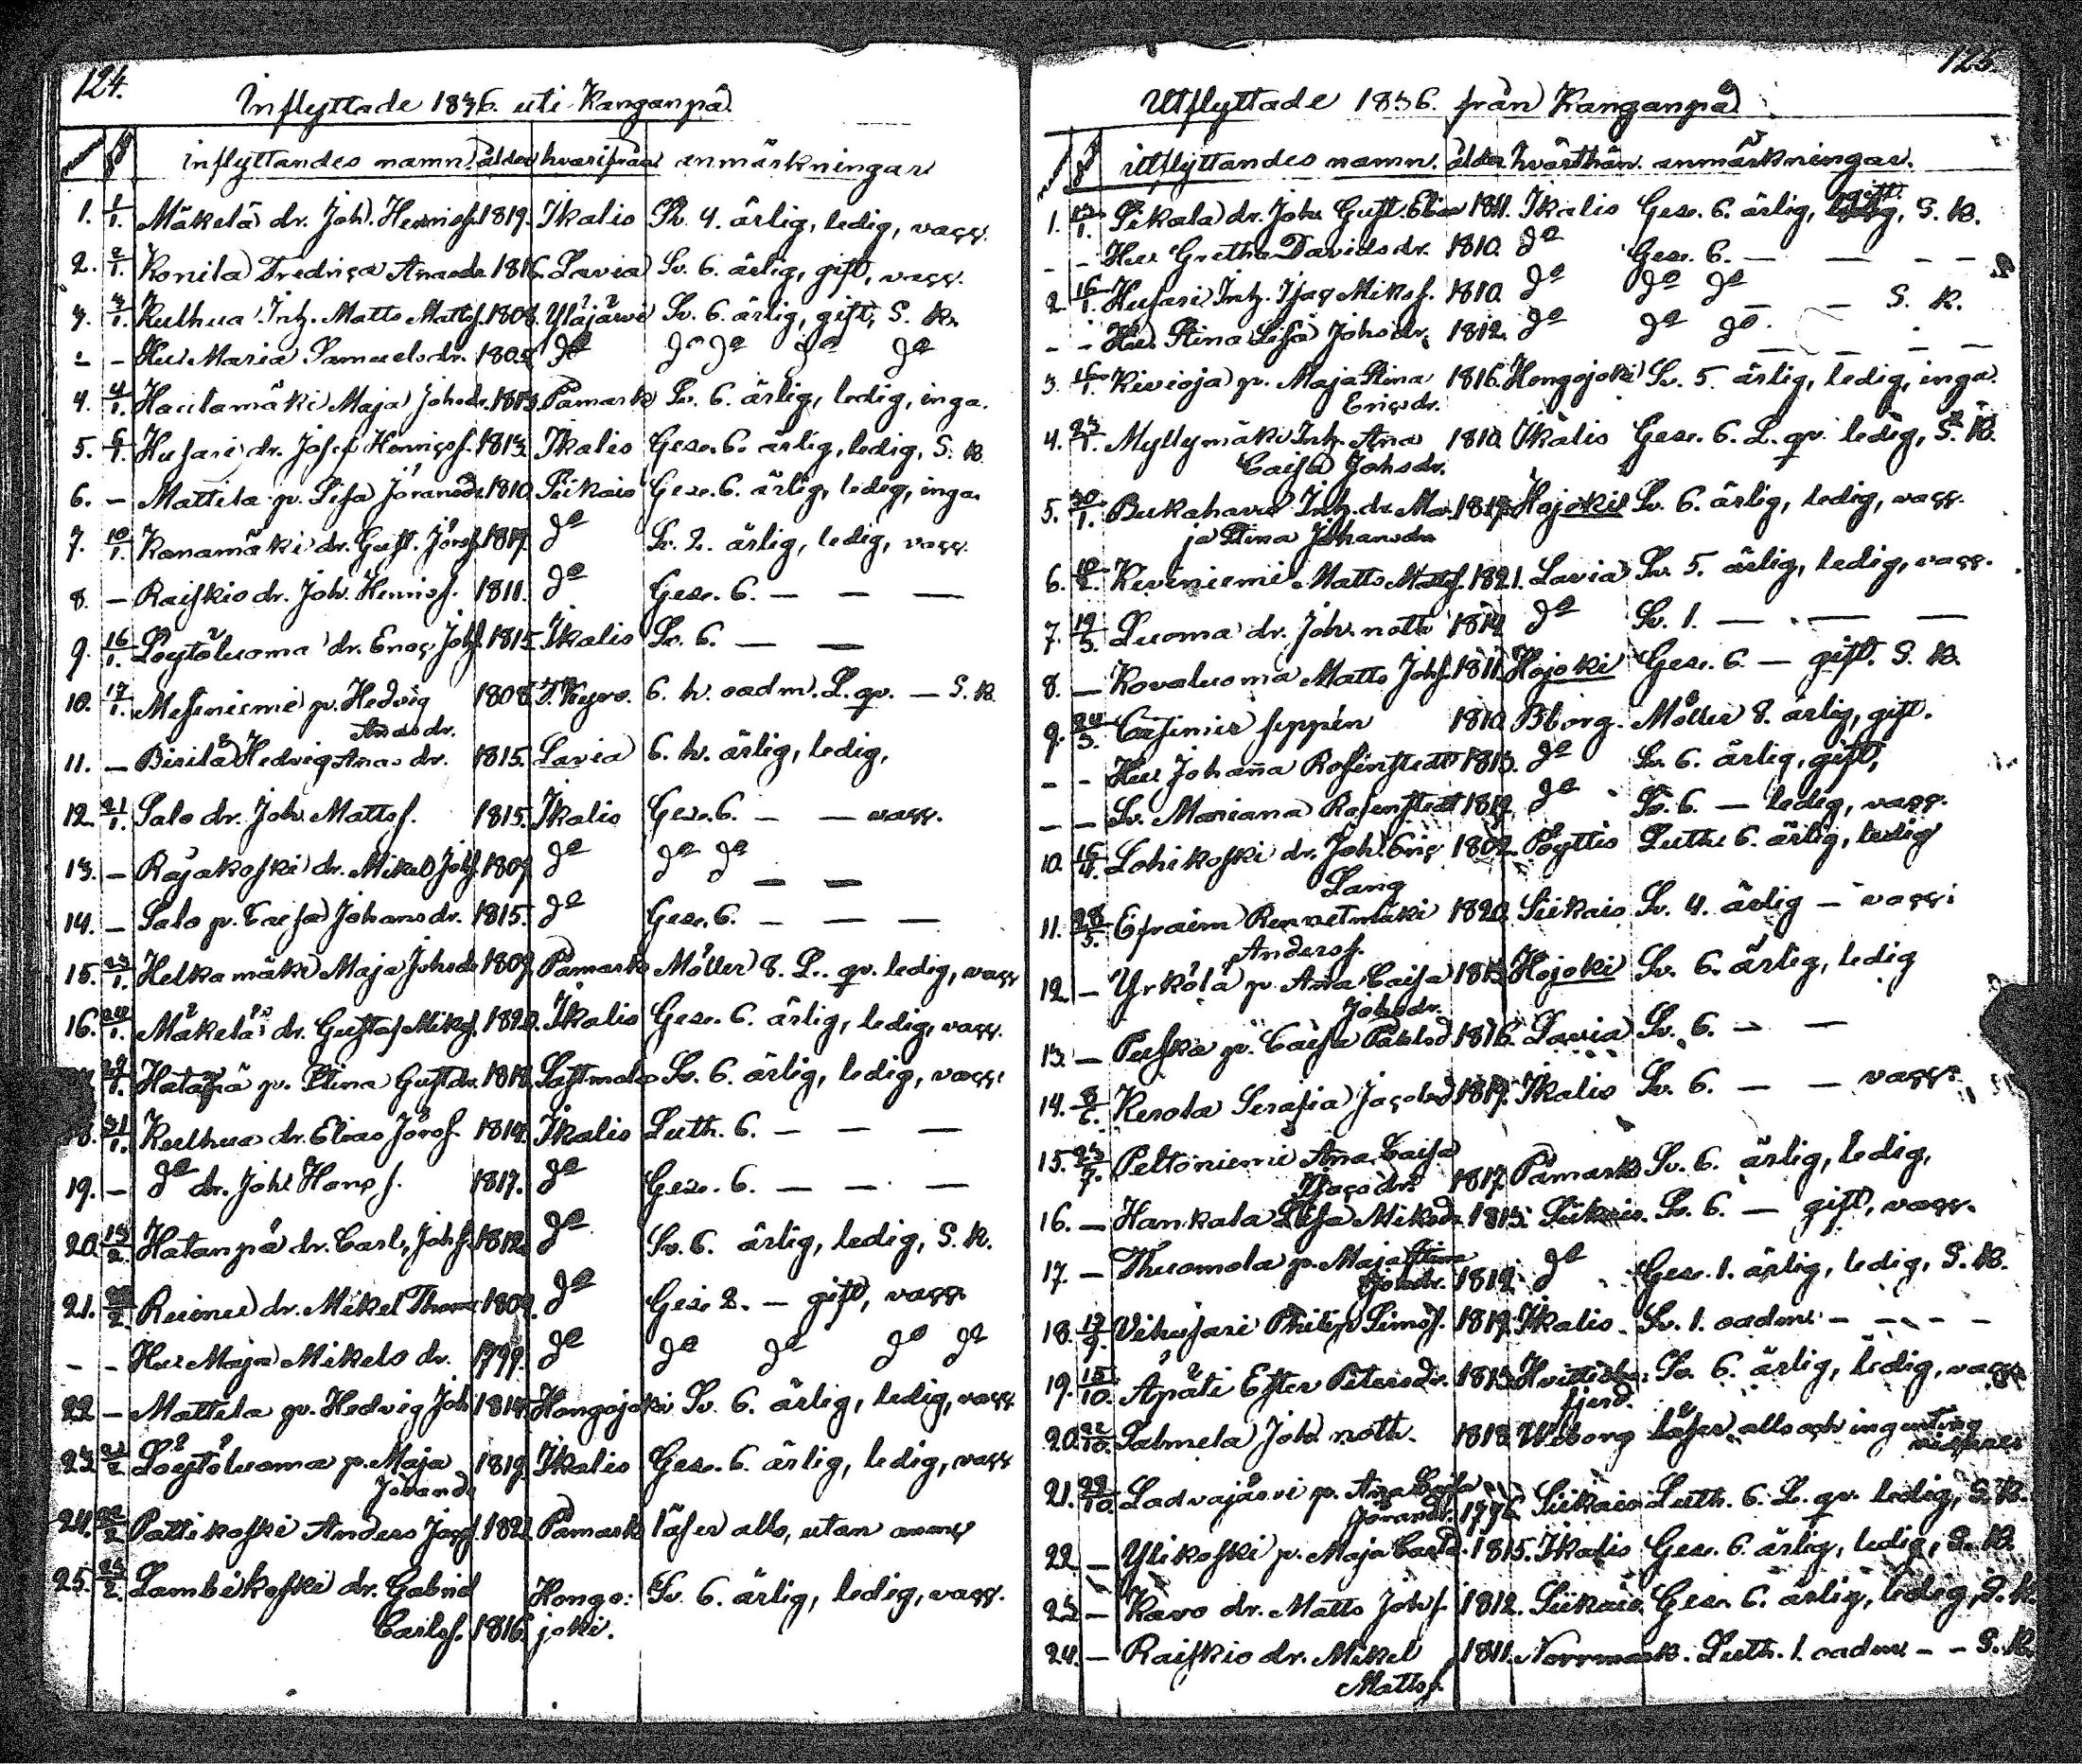 124.
Inflyttade 1836. uti Kanganpä
inflyttandes namn. ålder hvarifrån anmärkningar
1. 1/1. Mäkelä dr. Joh. Henricsf. 1819. Ikalis 4. ärlig, ledig, vacc.
2. 2/1. Konila Fredrica Anasdr. Lavia Sv. 6. ärlig, gift, vacc.
3. 3/1. Kulhua Inh. Matts Mattsf. 1808. Ylöjärvi Sv. 6. ärlig, gift, S. K.
- - Hu Maria Samuelsdr. do do do do do
4. 4/1. Hautamäki Maja Johsdr. Påmark Sv. 6. ärlig, ledig, inga.
5. Husari dr. Josef Henricsf. 1813. Ikalis Gese. 6. ärlig, ledig, S. K.
6. - Mattila p. Lisa Joransdr. 1810. Siikais Gese. 6. ärlig, ledig, inga.
7. 10/1. Kanamäki dr. Gust. Jörsf. 1817. do Sv. 2. ärlig, ledig, vacc.
8. - Raiskio dr. Joh. Henricsf. 1811. do Gese. 6. - - -
9. 16/1. Löytöluoma dr. Enoc Johsf. 1815. Ikalis Sv. 6. - -
10. 17/1. Mesiniemi p. Hedvig 1808. T.Kyro. 6. h. oadm. L. qv. - S. K.
Andsdr.
11. - Hedvig Anas dr. 1815. Lavia 6. h. ärlig, ledig,
12. 21/1. Salo dr. Joh. Mattsf. 1815. Ikalis Gese. 6. - - vacc.
13. - Rajakoski dr. Mikel Johsf. 1809. do do do - -
14. - Salo p. Caisa Johansdr. 1815. do Gese. 6. - - -
15. 23/1. Helkamäki Maja Johsdr. 1809. Påmark Möller 8. L. qv. ledig, vacc
16. Mäkelä dr. Gustaf Miksf. Ikalis Gese. 6. ärlig, ledig, vacc.
Hatapä p. Stina Gustdr. 1818. Sastmola Sv. 6. ärlig, ledig, vacc.
31/1. Kulhua dr. Elias Jörsf. 1814. Ikalis Luth. 6. - - -
19. - do dr. Joh. Hansf. 1817. do Gese. 6. - - -
20. 13/2. Hatanpä dr. Carl Johsf. 1812. do Sv. 6. ärlig, ledig, S. K.
21. Reime dr. Mikel Thoms 1809. do Gese 2. - gift, vacc.
- - Hu Maja Mikels dr. 1799. do do do do do
22. - Mattila p. Hedvig Joh 1814. Hongojoki Sv. 6. ärlig, ledig, vacc
23. Löytöluoma p. Maja 1819. Ikalis Gese. 6. ärlig, ledig, vacc
Johansd
24. 22/2 Pattikoski Anders Påmark läser alls, utan
25. 23/2. Lambikoski dr. Gabriel Hongo: Sv. 6. ärlig, ledig, vacc.
Carlsf. 1816. joki.
125.
Utflyttade 1836. från Kanganpä
utflyttandes namn. ålder hvarthän. anmärkningar.
1. 13/1. Pikala dr. Joh. Gust. Elias 1811. Ikalis Gese. 6. ärlig, gift, S. K.
- - Hu Gretha Davids dr. 1810. do Gese. 6. - - - -
2. 16/1. Husari Inh. Isac Miksf. 1810. do do do - - S. K.
- - Hu Stina Lisa Johsdr. 1812. do do do. - - - -
3. 16/1. Kivioja p. Maja Stina 1816. Hongojoki Sv. 5. ärlig, ledig, inga.
Ericsdr.
4. 23/1. Myllymäki Inh. Ana 1810. Ikalis Gese. 6. L. qv. ledig, S. K.
Caisa Johsdr.
5. 30/1. Bukahara Inh. dr. Ma- 1817. Hojoki Sv. 6. ärlig, ledig, vacc.
ja Stina Johansdr
6. 10/2. Keviniemi Matts Mattsf. 1821. Lavia Sv. 5. ärlig, ledig, vacc.
7. 19/3. Luoma dr. Joh. noth 1814. do Sv. 1. - - -
8. - Kovaluoma Matts Johsf. 1811. Hojoki Gese. 6. - gift. S. K.
9. 24/3. Casimir seppén 1810. Bborg. Möller 8. ärlig, gift.
- - Hu Johana Rosenstedt 1813. do Sv. 6. ärlig, gift,
- - Sv. Mariana Rosenstedt 1812. do Sv. 6. - ledig, vacc.
10. 16/4. Lohikoski dr. Joh. Eric 1802. Pöyttis Luth. 6. ärlig, ledig
Lang
11. 28/5. Efraim Renvetmäki 1820. Siikais Sv. 4. ärlig - vacc.
Andersf.
12. - Yrkölä p. Ana Caisa 1813. Hojoki Sv. 6. ärlig, ledig
Johsdr.
13. - Puska p. Caisa 1816. Lavia Sv. 6. - -
14. Kerola Serafia Jacobsd 1817. Ikalis Sv. 6. - - vacc.
15. 23/7. Peltoniemi Ana Caisa
Isacsdr. 1817. Påmark Sv. 6. ärlig, ledig,
16. - Hankala Lisa Miksdr. 1813. Siikais. Sv. 6. - gift, vacc.
17. - Thuomola p. Maja Stina
1812. do Gese. 1. ärlig, ledig, S. K.
18. 17/9. Vihusari Philip Simsf. 1817. Ikalis. Sv. 1. oadm. - - - -
19. 15/10. Äpäti Ester Petersdr. 1813. Hvittisbo: Sv. 6. ärlig, ledig, vacc
fjerd.
20. 22/10. Salmela Joh noth. 1818. Wiborg läser alls och ingenting
21. 29/10. Ladvajärvi p. Ana Caisa
Jöransdr. 1796. Siikais Luth. 6. L. qv. ledig, S. K.
22. - Ylikoski p. Maja Carlsd. 1815. Ikalis Gese. 6. ärlig, ledig, S. K.
23. - Kavo dr. Matts Johsf. 1812. Siikais. Gese. 6. ärlig, ledig, S. K.
24. - Raiskio dr. Mikel 1811. Norrmark. Luth. 1. oadm. - - S. K.
Mattsf.